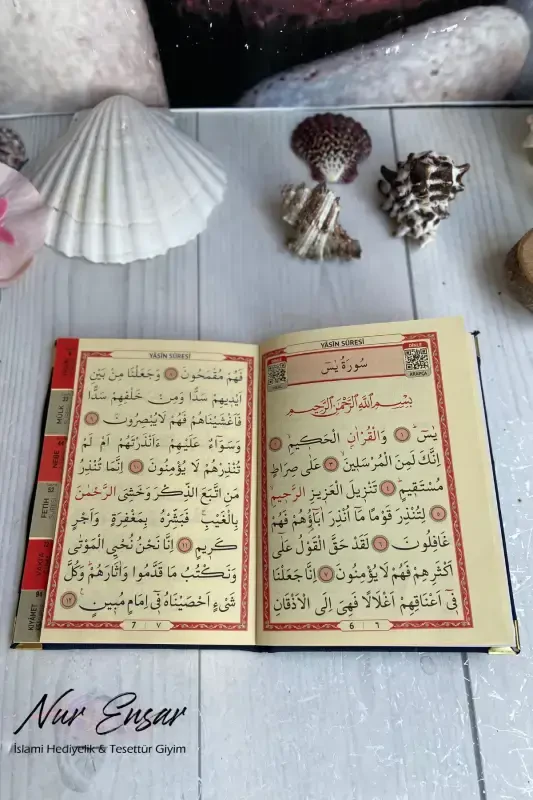 YÂSÎN SÛRESİ
DİNLE
سُورَةُ يٰسٓ
ARAPÇA
بِسْمِ اللّٰهِ الرَّحْمٰنِ الرَّحِيمِ
يٰسٓ ﴿١﴾ وَالْقُرْاٰنِ الْحَكِيمِ ﴿٢﴾
اِنَّكَ لَمِنَ الْمُرْسَلِينَ ﴿٣﴾ عَلٰى صِرَاطٍ
مُسْتَقِيمٍ ﴿٤﴾ تَنْزِيلَ الْعَزِيزِ الرَّحِيمِ
﴿٥﴾ لِتُنْذِرَ قَوْمًا مَٓا اُنْذِرَ اٰبَٓاؤُ۬هُمْ فَهُمْ
غَافِلُونَ ﴿٦﴾ لَقَدْ حَقَّ الْقَوْلُ عَلٰٓى
اَكْثَرِهِمْ فَهُمْ لَا يُؤْمِنُونَ ﴿٧﴾ اِنَّا جَعَلْنَا
فِٓي اَعْنَاقِهِمْ اَغْلَالًا فَهِيَ اِلَى الْاَذْقَانِ
6 ٦
YÂSÎN SÛRESİ
فَهُمْ مُقْمَحُونَ ﴿٨﴾ وَجَعَلْنَا مِنْ بَيْنِ
اَيْدِيهِمْ سَدًّا وَمِنْ خَلْفِهِمْ سَدًّا
فَاَغْشَيْنَاهُمْ فَهُمْ لَا يُبْصِرُونَ ﴿٩﴾
وَسَوَٓاءٌ عَلَيْهِمْ ءَاَنْذَرْتَهُمْ اَمْ لَمْ
تُنْذِرْهُمْ لَا يُؤْمِنُونَ ﴿١٠﴾ اِنَّمَا تُنْذِرُ
مَنِ اتَّبَعَ الذِّكْرَ وَخَشِيَ الرَّحْمٰنَ
بِالْغَيْبِۚ فَبَشِّرْهُ بِمَغْفِرَةٍ وَاَجْرٍ
كَرِيمٍ ﴿١١﴾ اِنَّا نَحْنُ نُحْيِ الْمَوْتٰى
وَنَكْتُبُ مَا قَدَّمُوا وَاٰثَارَهُمْۜ وَكُلَّ
شَيْءٍ اَحْصَيْنَاهُ فِٓي اِمَامٍ مُبِينٍ ﴿١٢﴾
7 ٧
MÜLK
NEBE
FETİH
VAKIA
KIYÂMET
Nur Ensar
İslami Hediyelik & Tesettür Giyim